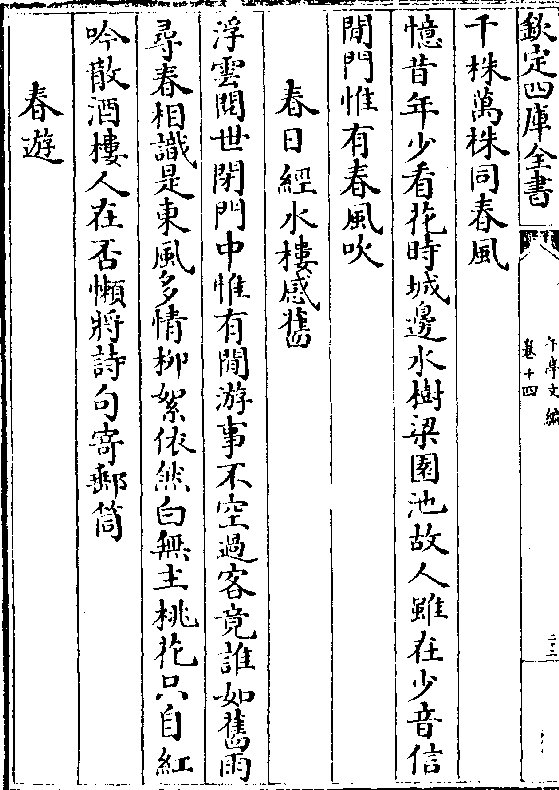 欽定四庫全書
午亭文編
卷十四
千株萬株同春風
憶昔年少看花時城邊水樹梁園池故人雖在少音信
閒門惟有春風吹
春日經水樓感舊
浮雲閱世閉門中惟有閒游事不空過客竟誰如舊雨
尋春相識是東風多情柳絮依然白無主桃花只自紅
吟散酒樓人在否懶將詩句寄郵筒
春遊